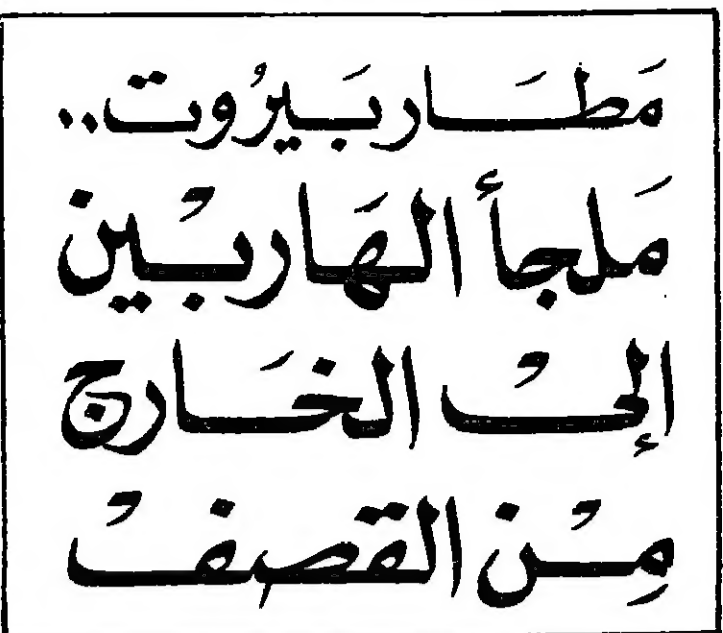 مَطَار بَيرُوت..
مَلجأ الهَاربْين
إلىْ الخَارج
مِنْ القصفْ